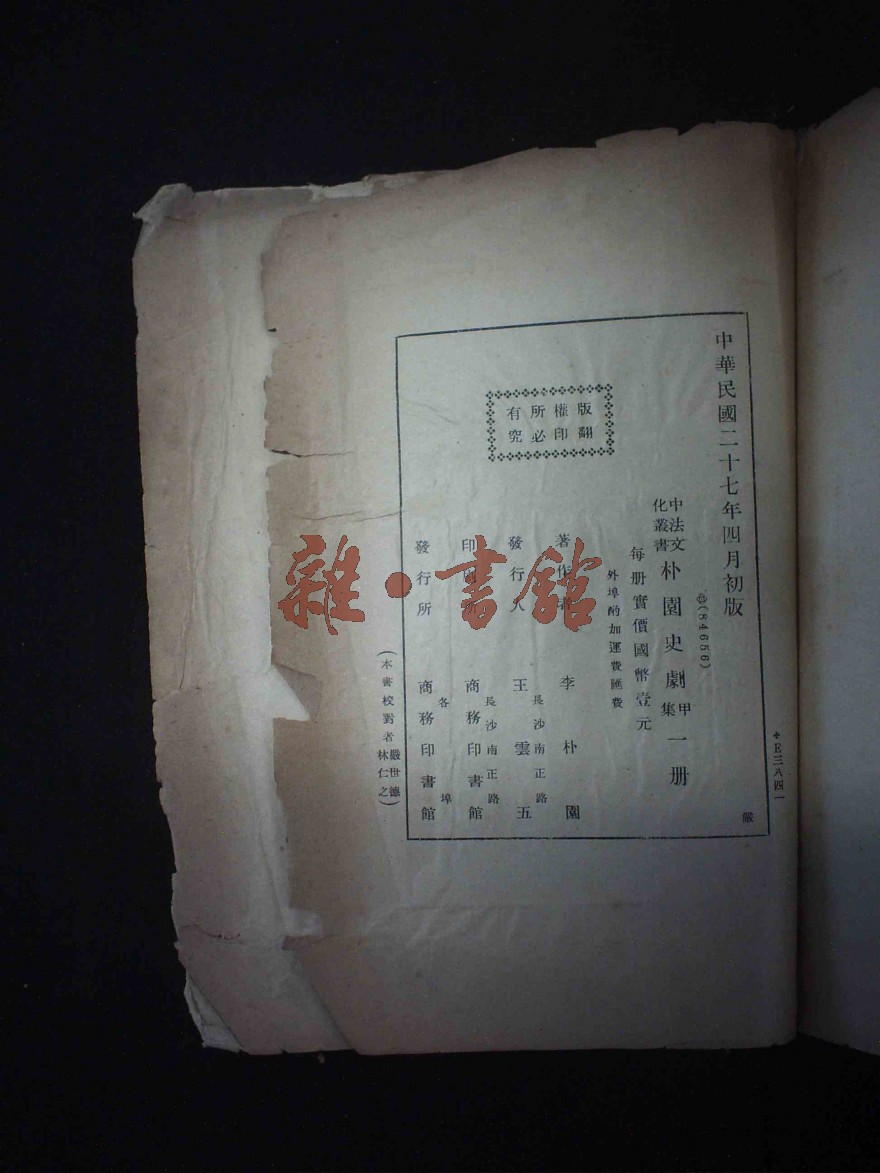 中華民國二十七年四月初版
(84656)
中法文化叢書 朴園史劇甲集 一册
每册實價國幣壹元
外埠酌加運費匯費
版權所有
翻印必究
著作者 李朴園
發行人 王雲五
長沙南正路
印刷所 商務印書館
長沙南正路
發行所 商務印書館
各埠
(本書校對者 嚴世德 林仁之)
E三八四一
嚴
雜·書館